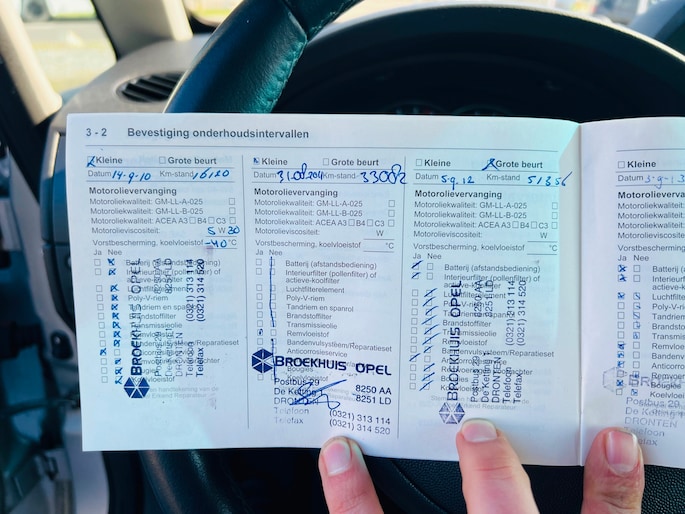 3 - 2 Bevestiging onderhoudsintervallen
Kleine Grote beurt
Datum 14-9-10 Km-stand 16120
Motorolievervanging
Motoroliekwaliteit: GM-LL-A-025
Motoroliekwaliteit: GM-LL-B-025
Motoroliekwaliteit: ACEA A3 B4 C3
Motorolieviscositeit: 5 W 30
Vorstbescherming, koelvloeistof -40 °C
Ja Nee
Batterij (afstandsbediening)
Interieurfilter (pollenfilter) of
actieve-koolfilter
Luchtfilterelement
Poly-V-riem
Tandriem en spanrol
Brandstoffilter
Transmissieolie
Remvloeistof
Bandenvulsysteem/Reparatieset
BROEKHUIS OPEL
DRONTEN
Telefoon
Telefax
8251 LD
(0321) 313 114
(0321) 314 520
Kleine Grote beurt
Datum Km-stand 33082
Motorolievervanging
Motoroliekwaliteit: GM-LL-A-025
Motoroliekwaliteit: GM-LL-B-025
Motoroliekwaliteit: ACEA A3 B4 C3
Motorolieviscositeit: W
Vorstbescherming, koelvloeistof °C
Ja Nee
Batterij (afstandsbediening)
Interieurfilter (pollenfilter) of
actieve-koolfilter
Luchtfilterelement
Poly-V-riem
Tandriem en spanrol
Brandstoffilter
Transmissieolie
Remvloeistof
Bandenvulsysteem/Reparatieset
Anticorrosieservice
BROEKHUIS OPEL
Postbus 29 8250 AA
De Ketting 1 8251 LD
DRONTEN
Telefoon (0321) 313 114
Telefax (0321) 314 520
Kleine Grote beurt
Datum 5-9-12 Km-stand 51356
Motorolievervanging
Motoroliekwaliteit: GM-LL-A-025
Motoroliekwaliteit: GM-LL-B-025
Motoroliekwaliteit: ACEA A3 B4 C3
Motorolieviscositeit: W
Vorstbescherming, koelvloeistof °C
Ja Nee
Batterij (afstandsbediening)
Interieurfilter (pollenfilter) of
actieve-koolfilter
Luchtfilterelement
Poly-V-riem
Tandriem en spanrol
Brandstoffilter
Transmissieolie
Remvloeistof
Bandenvulsysteem/Reparatieset
BROEKHUIS OPEL
Postbus 29
De Ketting 1
DRONTEN
Telefoon
Telefax
8250 AA
8251 LD
(0321) 313 114
(0321) 314 520
Kleine
Datum
Motorolievervanging
Motoroliekwaliteit:
Motoroliekwaliteit:
Motoroliekwaliteit:
Motorolieviscositeit:
Vorstbescherming,
Ja Nee
Batterij
Interieurfilter
Bougies
Koelvloeistof
Postbus 29
De Ketting
DRONTEN
Telefoon
Telefax